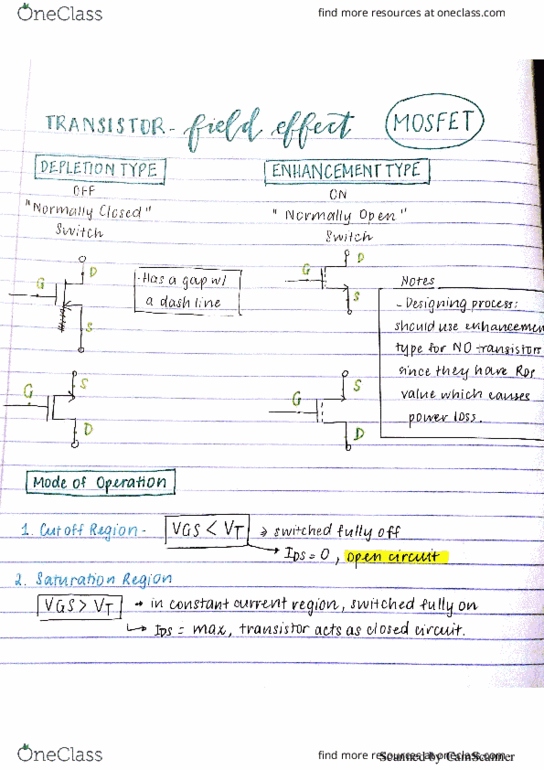 OneClass
find more resources at oneclass.com
TRANSISTOR - field effect MOSFET
DEPLETION TYPE
OFF
"Normally Closed"
Switch
ENHANCEMENT TYPE
ON
" Normally Open"
Switch
G
D
S
- Has a gap w/
a dash line
G
D
S
Notes
- Designing process:
should use enhancemen
type for NO transistors
since they have RDS
value which causes
power loss.
G
S
D
G
S
D
Mode of Operation
1. Cutoff Region - VGS < VT → switched fully off
→ IDS = 0, open circuit
2. Saturation Region
VGS > VT → in constant current region, switched fully on
↳ IDS = max, transistor acts as closed circuit.
OneClass
find more resources at oneclass.com
Scanned by CamScanner